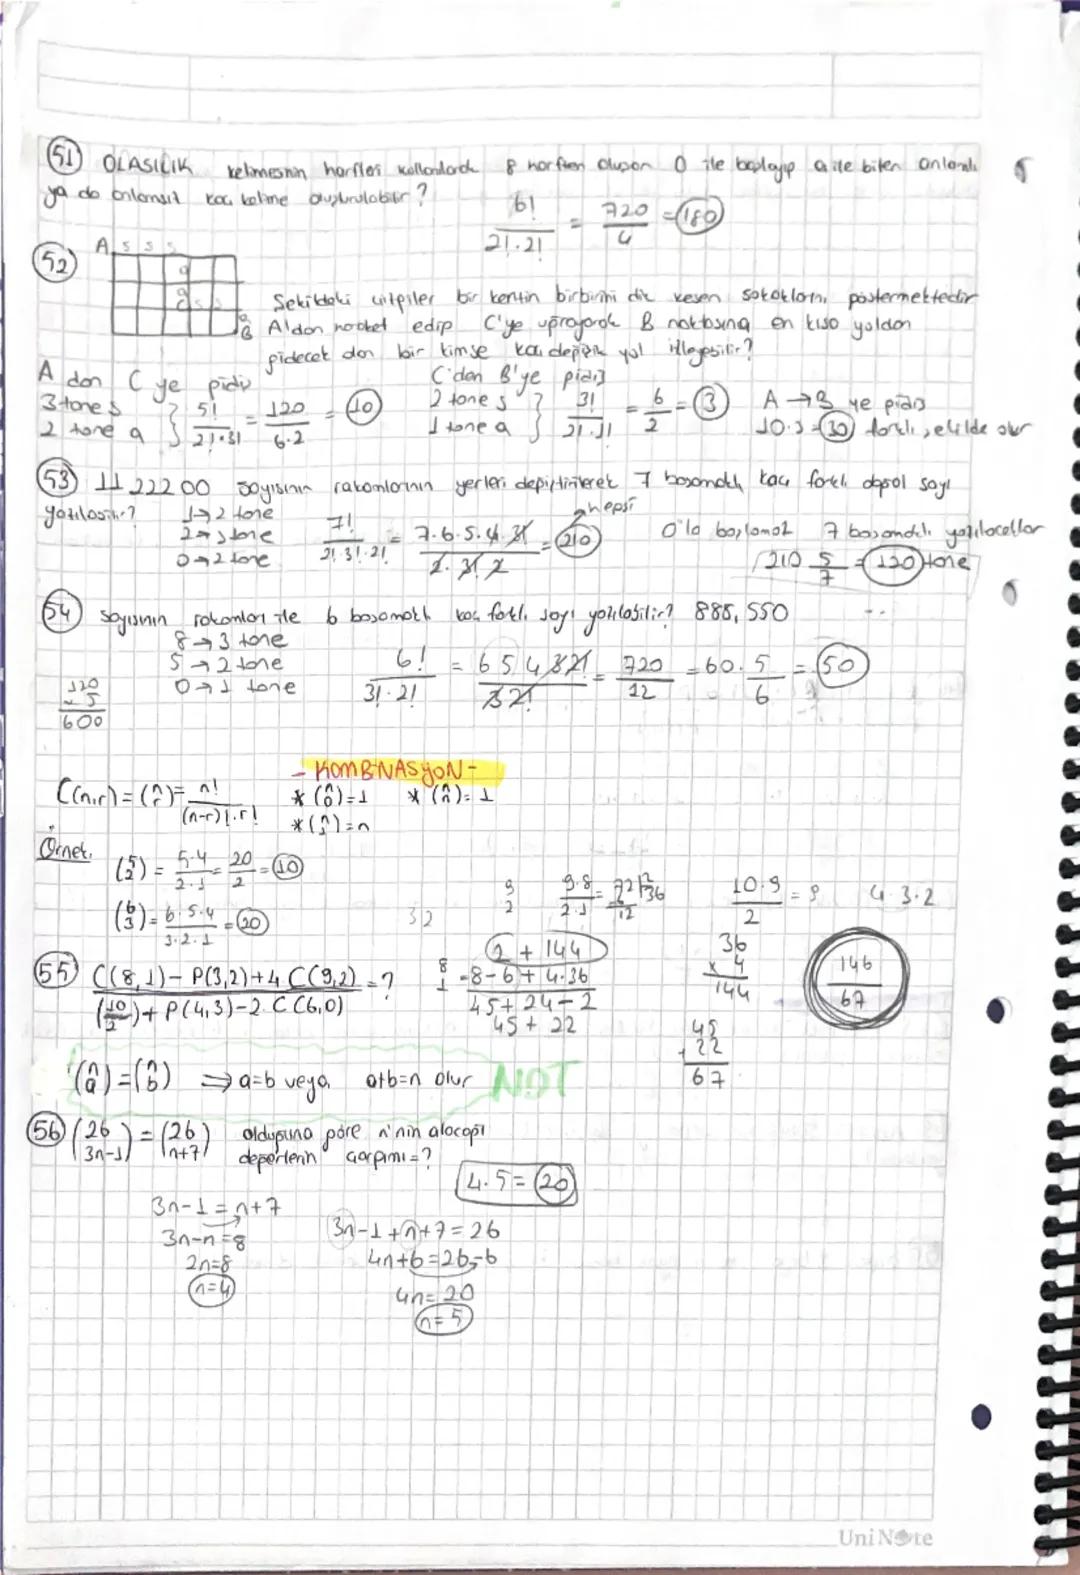 51 OLASILIK kelimesinin harfleri kullanılarak 8 harften oluşan O ile başlayıp a ile biten anlamlı
ya da anlamsız kaç kelime oluşturulabilir?
6! / 2!.2! = 720 / 4 = 180
52
A s s s
a
a
C s s
a
B
Şekildeki çizgiler bir kentin birbirini dik kesen sokaklarını göstermektedir
A'dan hareket edip C'ye uğrayarak B noktasına en kısa yoldan
gidecek olan bir kimse kaç değişik yol izleyebilir?
A dan C ye gidiş
3 tane s
2 tane a
5! / 2!.3! = 120 / 6.2 = 10
C'den B'ye gidiş
2 tane s
1 tane a
3! / 2!.1! = 6 / 2 = 3
A → B ye gidiş
10.3 = 30 farklı şekilde olur
53 1122200 sayısının rakamlarının yerleri değiştirilerek 7 basamaklı kaç farklı doğal sayı
yazılabilir?
1 → 2 tane
2 → 3 tane
0 → 2 tane
7! / 2!.3!.2! = 7.6.5.4.3! / 2.3!.2 = 210
hepsi
0'la başlamaz 7 basamaklı yazılacaklar
210 5/7 = 120 tane
54 sayısının rakamları ile 6 basamaklı kaç farklı sayı yazılabilir? 888,550
8 → 3 tane
5 → 2 tane
0 → 1 tane
6! / 3!.2! = 6 5 4 3 2 1 / 3 2! = 720 / 12 = 60. 5/6 = 50
120
x 5
600
- KOMBİNASYON -
C(n,r) = (n r) = n! / (n-r)!.r!
* (n 0) = 1 * (n n) = 1
* (n 1) = n
Örnek.
(5 2) = 5.4 / 2.1 = 20 / 2 = 10
(6 3) = 6.5.4 / 3.2.1 = 20
32
9
2
9.8 / 2.1 = 72
36
12
10.9 / 2 = 9
4.3.2
55 C(8,1) - P(3,2) + 4 C(9,2) / (10 2) + P(4,3) - 2. C(6,0) = ?
8
1
2 + 144
= 8 - 6 + 4.36
45 + 24 - 2
45 + 22
36
x 4
144
146
67
45
+ 22
67
(n a) = (n b) ⟹ a=b veya a+b=n olur NOT
56 (26 3n-1) = (26 n+7) olduğuna göre n'nin alacağı
değerlerin çarpımı = ?
4.5 = 20
3n-1 = n+7
3n-n = 8
2n=8
n=4
3n-1+n+7 = 26
4n+6 = 26-6
4n = 20
n = 5
UniNote